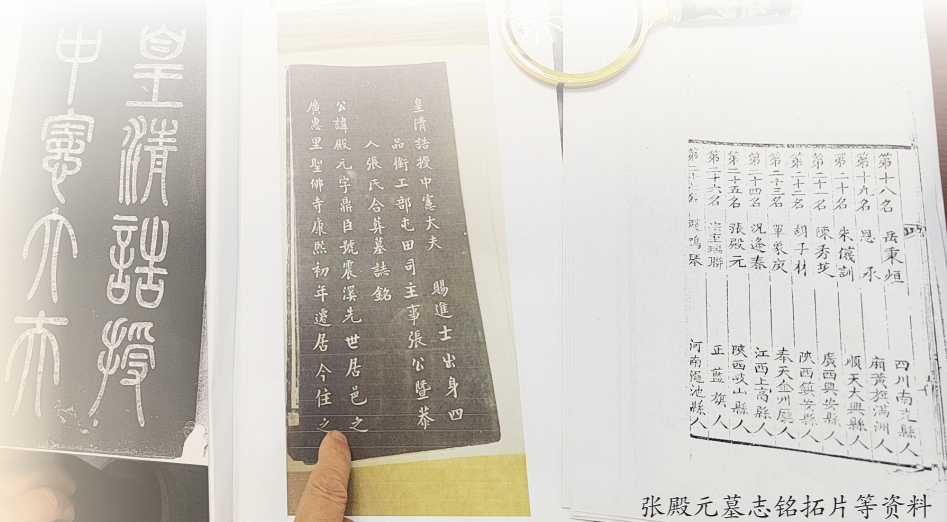 皇清誥授
中憲大夫
皇清誥授中憲大夫 賜進士出身四
品銜工部屯田司主事張公暨恭
人張氏合葬墓誌銘
公諱殿元字鼎臣號震溪先世居邑之
廣惠里聖佛寺康熙初年遷居今住之
第十八名 岳秉烜 四川南充縣人
第十九名 恩承 廂黃旗滿洲人
第二十名 朱儀訓 順天大興縣人
第二十一名 陳秀 廣西興安縣人
第二十二名 胡子材 陝西鎮安縣人
第二十三名 奉天金州廳人
第二十四名 況逢春 江西上高縣人
第二十五名 張殿元 陝西岐山縣人
第二十六名 宗室瑞聯 正藍旗人
河南澠池縣人
张殿元墓志铭拓片等资料